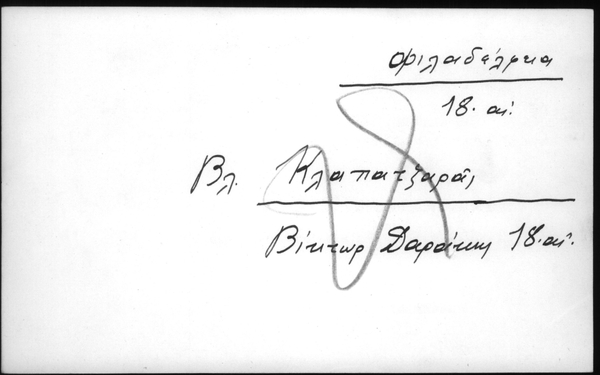 Φιλαδέλφεια
18. αἰ.
Βλ. Κλαπατζαρᾶς
Βίκτωρ Δαράκης 18. αἰ.